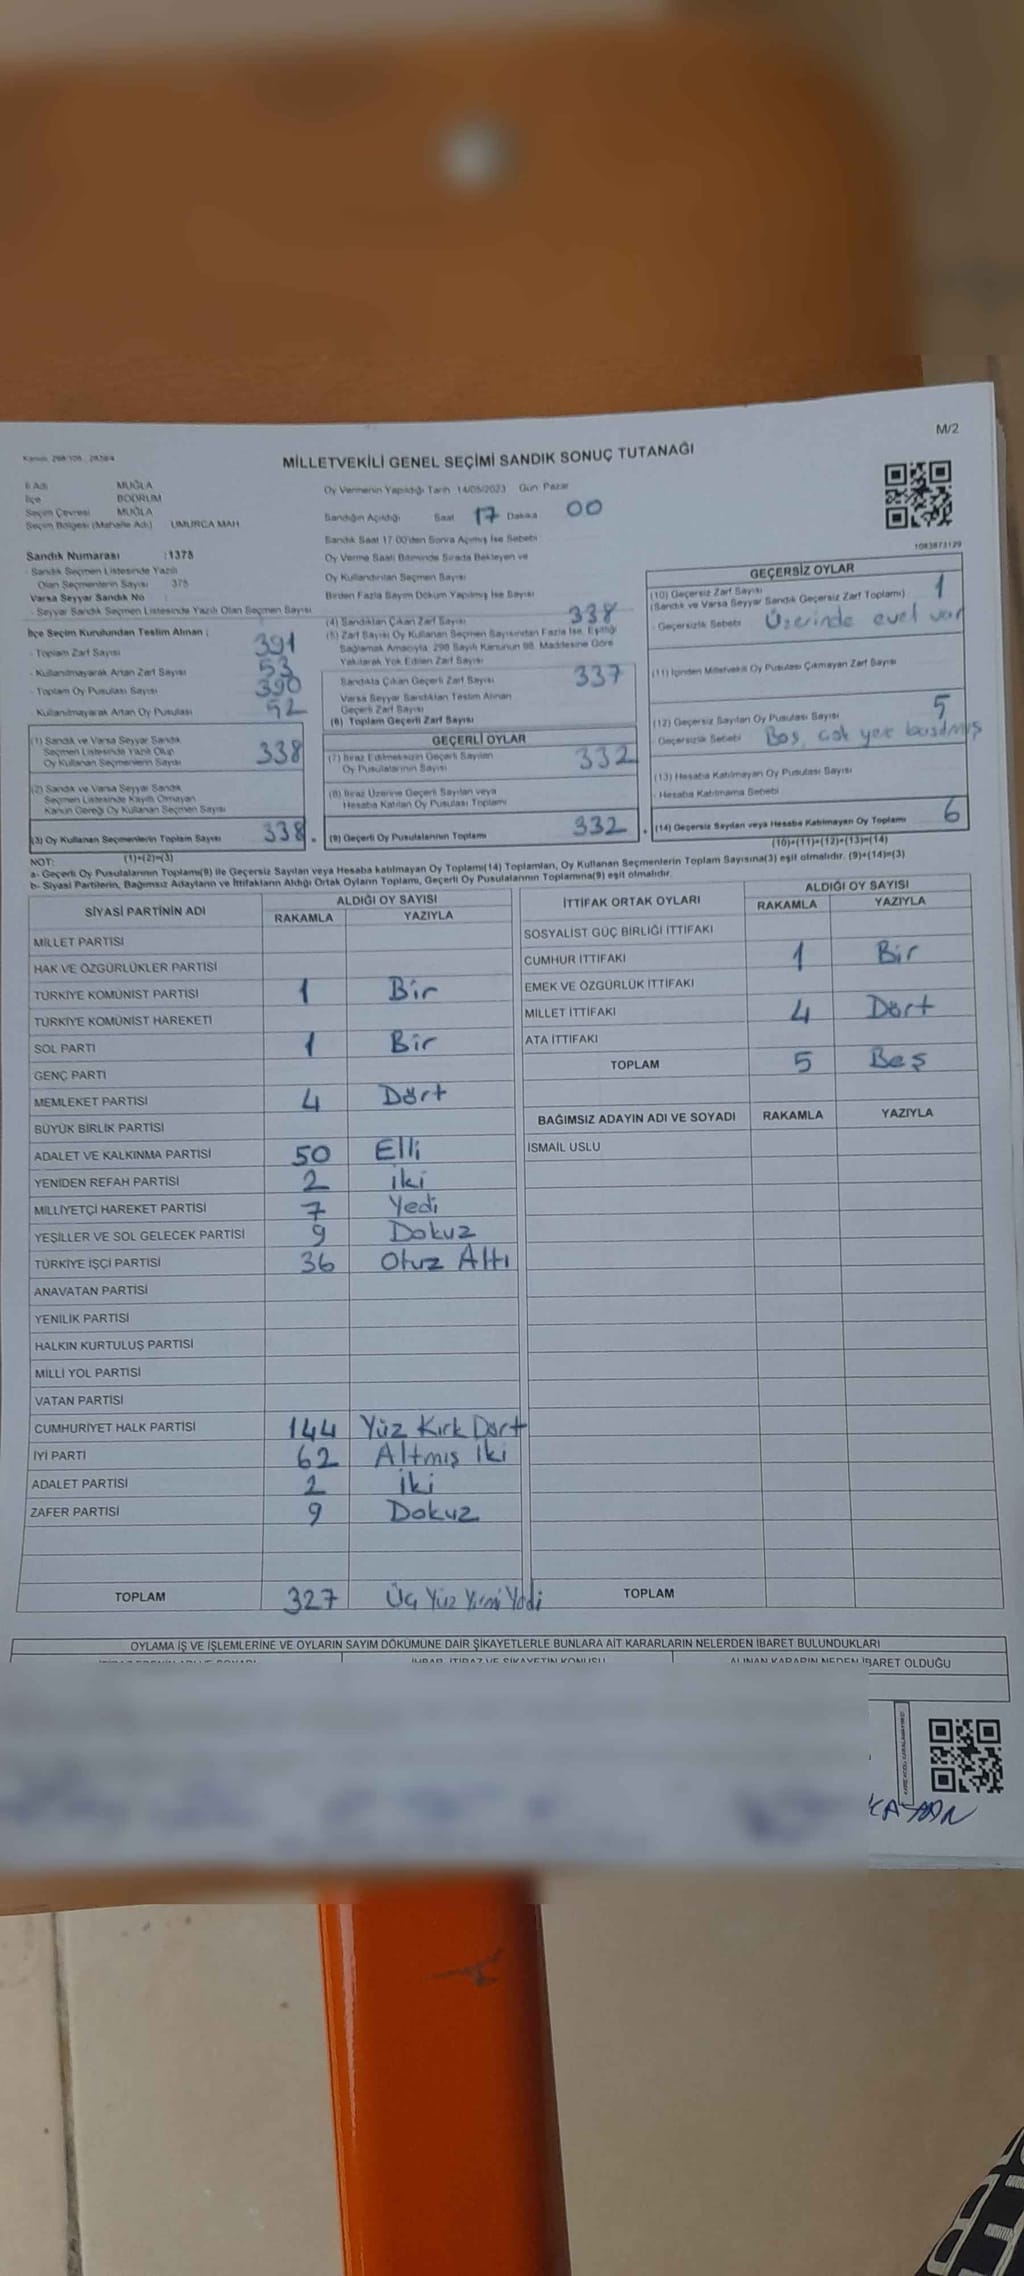 M/2
MİLLETVEKİLİ GENEL SEÇİMİ SANDIK SONUÇ TUTANAĞI
İl Adı MUĞLA
İlçe BODRUM
Seçim Çevresi MUĞLA
Seçim Bölgesi (Mahalle Adı) UMURCA MAH
Sandık Numarası :1375
Sandık Seçmen Listesinde Yazılı
Olan Seçmenlerin Sayısı 375
Varsa Seyyar Sandık No :
- Seyyar Sandık Seçmen Listesinde Yazılı Olan Seçmen Sayısı
İlçe Seçim Kurulundan Teslim Alınan :
- Toplam Zarf Sayısı 391
- Kullanılmayarak Artan Zarf Sayısı 53
- Toplam Oy Pusulası Sayısı 390
- Kullanılmayarak Artan Oy Pusulası 52
(1) Sandık ve Varsa Seyyar Sandık
Seçmen Listesinde Yazılı Olup
Oy Kullanan Seçmenlerin Sayısı 338
(2) Sandık ve Varsa Seyyar Sandık
Seçmen Listesinde Kayıtlı Olmayan
Kanun Gereği Oy Kullanan Seçmen Sayısı
(3) Oy Kullanan Seçmenlerin Toplam Sayısı 338
(1)+(2)=(3)
Oy Vermenin Yapıldığı Tarih 14/05/2023 Gün Pazar
Sandığın Açıldığı Saat 17 Dakika 00
Sandık Saat 17 00'den Sonra Açılmış İse Sebebi
Oy Verme Saati Bitiminde Sırada Bekleyen ve
Oy Kullandırılan Seçmen Sayısı
Birden Fazla Sayım Döküm Yapılmış İse Sayısı
(4) Sandıktan Çıkan Zarf Sayısı 338
(5) Zarf Sayısı Oy Kullanan Seçmen Sayısından Fazla İse, Eşitliği
Sağlamak Amacıyla, 298 Sayılı Kanunun 98. Maddesine Göre
Yakılarak Yok Edilen Zarf Sayısı
Sandıkta Çıkan Geçerli Zarf Sayısı 337
Varsa Seyyar Sandıktan Teslim Alınan
Geçerli Zarf Sayısı
(6) Toplam Geçerli Zarf Sayısı
GEÇERLİ OYLAR
(7) İtiraz Edilmeksizin Geçerli Sayılan
Oy Pusulalarının Sayısı 332
(8) İtiraz Üzerine Geçerli Sayılan veya
Hesaba Katılan Oy Pusulası Toplamı
(9) Geçerli Oy Pusulalarının Toplamı 332
1083873129
GEÇERSİZ OYLAR
(10) Geçersiz Zarf Sayısı 1
(Sandık ve Varsa Seyyar Sandık Geçersiz Zarf Toplamı)
- Geçersizlik Sebebi Üzerinde evet var
(11) İçinden Milletvekili Oy Pusulası Çıkmayan Zarf Sayısı
(12) Geçersiz Sayılan Oy Pusulası Sayısı 5
- Geçersizlik Sebebi Boş, çok yere basılmış
(13) Hesaba Katılmayan Oy Pusulası Sayısı
- Hesaba Katılmama Sebebi
(14) Geçersiz Sayılan veya Hesaba Katılmayan Oy Toplamı 6
(10)+(11)+(12)+(13)=(14)
NOT:
a- Geçerli Oy Pusulalarının Toplamı(9) ile Geçersiz Sayılan veya Hesaba katılmayan Oy Toplamı(14) Toplamları, Oy Kullanan Seçmenlerin Toplam Sayısına(3) eşit olmalıdır. (9)+(14)=(3)
b- Siyasi Partilerin, Bağımsız Adayların ve İttifakların Aldığı Ortak Oyların Toplamı, Geçerli Oy Pusulalarının Toplamına(9) eşit olmalıdır.
SİYASİ PARTİNİN ADI ALDIĞI OY SAYISI
RAKAMLA YAZIYLA
MİLLET PARTİSİ
HAK VE ÖZGÜRLÜKLER PARTİSİ
TÜRKİYE KOMÜNİST PARTİSİ 1 Bir
TÜRKİYE KOMÜNİST HAREKETİ
SOL PARTİ 1 Bir
GENÇ PARTİ
MEMLEKET PARTİSİ 4 Dört
BÜYÜK BİRLİK PARTİSİ
ADALET VE KALKINMA PARTİSİ 50 Elli
YENİDEN REFAH PARTİSİ 2 iki
MİLLİYETÇİ HAREKET PARTİSİ 7 Yedi
YEŞİLLER VE SOL GELECEK PARTİSİ 9 Dokuz
TÜRKİYE İŞÇİ PARTİSİ 36 Otuz Altı
ANAVATAN PARTİSİ
YENİLİK PARTİSİ
HALKIN KURTULUŞ PARTİSİ
MİLLİ YOL PARTİSİ
VATAN PARTİSİ
CUMHURİYET HALK PARTİSİ 144 Yüz Kırk Dört
İYİ PARTİ 62 Altmış İki
ADALET PARTİSİ 2 İki
ZAFER PARTİSİ 9 Dokuz
TOPLAM 327 Üç Yüz Yirmi Yedi
İTTİFAK ORTAK OYLARI ALDIĞI OY SAYISI
RAKAMLA YAZIYLA
SOSYALİST GÜÇ BİRLİĞİ İTTİFAKI
CUMHUR İTTİFAKI 1 Bir
EMEK VE ÖZGÜRLÜK İTTİFAKI
MİLLET İTTİFAKI 4 Dört
ATA İTTİFAKI
TOPLAM 5 Beş
BAĞIMSIZ ADAYIN ADI VE SOYADI RAKAMLA YAZIYLA
İSMAİL USLU
TOPLAM
OYLAMA İŞ VE İŞLEMLERİNE VE OYLARIN SAYIM DÖKÜMÜNE DAİR ŞİKAYETLERLE BUNLARA AİT KARARLARIN NELERDEN İBARET BULUNDUKLARI
İHBAR, İTİRAZ VE ŞİKAYETİN KONUSU ALINAN KARARIN NEDEN İBARET OLDUĞU